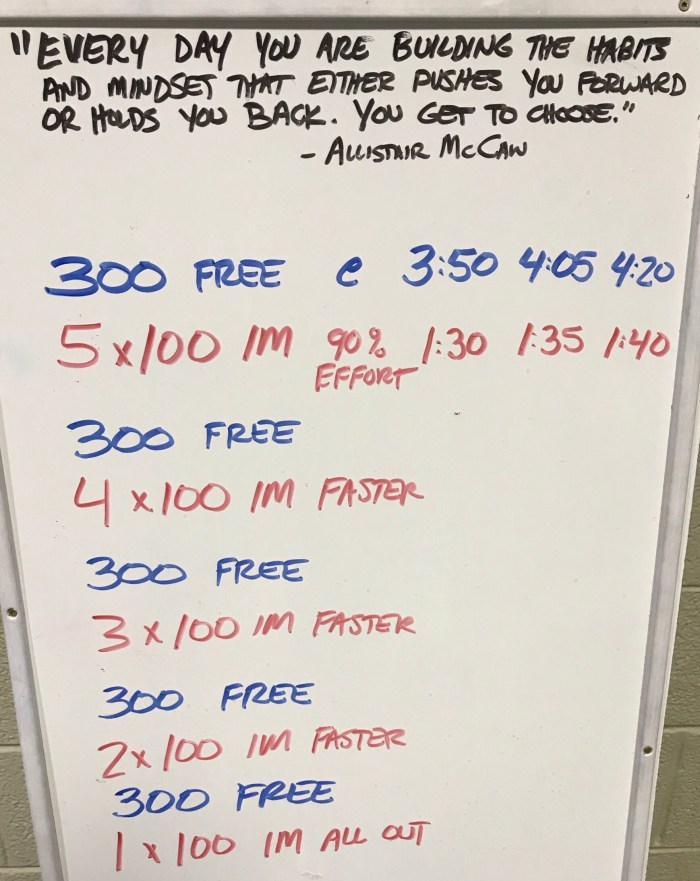 "EVERY DAY YOU ARE BUILDING THE HABITS
AND MINDSET THAT EITHER PUSHES YOU FORWARD
OR HOLDS YOU BACK. YOU GET TO CHOOSE."
- ALLISTAIR McCAW
300 FREE @ 3:50 4:05 4:20
5 x 100 IM 90% EFFORT 1:30 1:35 1:40
300 FREE
4 x 100 IM FASTER
300 FREE
3 x 100 IM FASTER
300 FREE
2 x 100 IM FASTER
300 FREE
1 x 100 IM ALL OUT